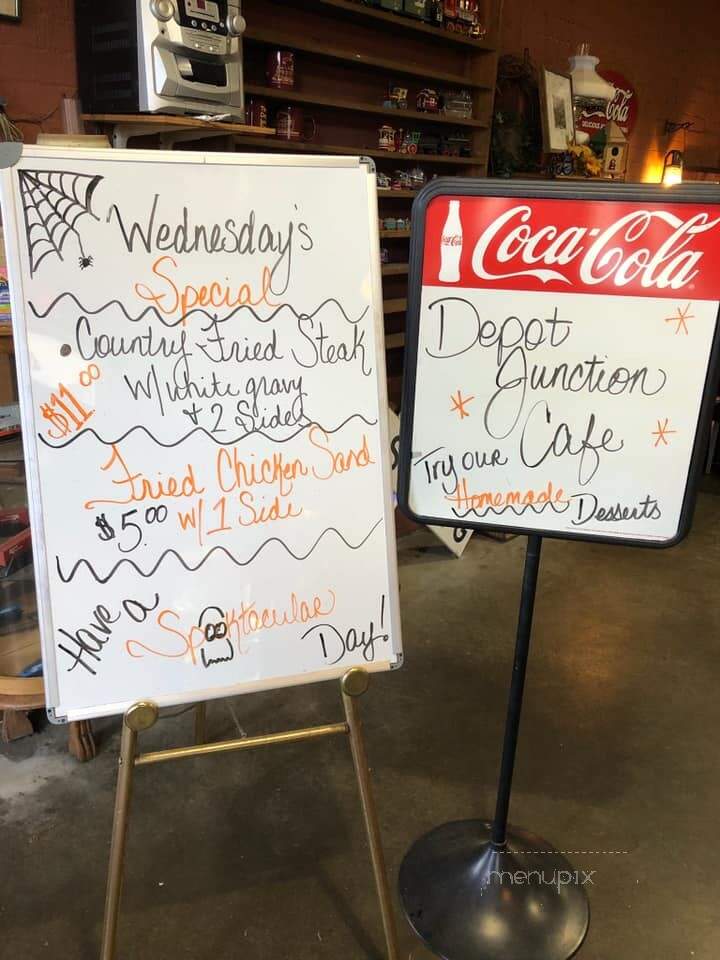 Wednesday's
Special
• Country Fried Steak
$11.00
w/ white gravy
+ 2 Sides
Fried Chicken Sand
$5.00 w/ 1 Side
Have a
Spooktacular
Day!
Coca-Cola
Depot
Junction
Cafe
Try our
Homemade Desserts
Coca-Cola
Cola
menupix